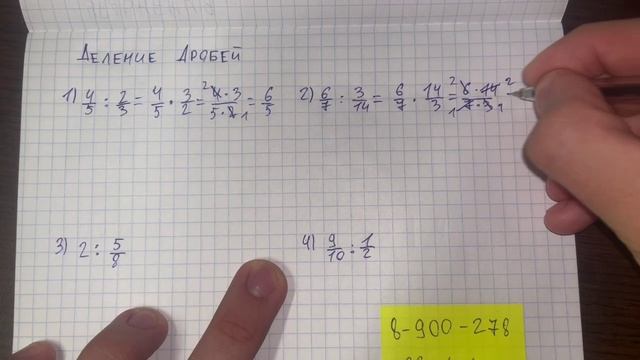 Деление дробей
1) 4/5 : 2/3 = 4/5 · 3/2 = ²4·3/5·2₁ = 6/5 2) 6/7 : 3/14 = 6/7 · 14/3 = ²6·14²/₁7·3₁
3) 2 : 5/8 4) 9/10 : 1/2
8-900-278